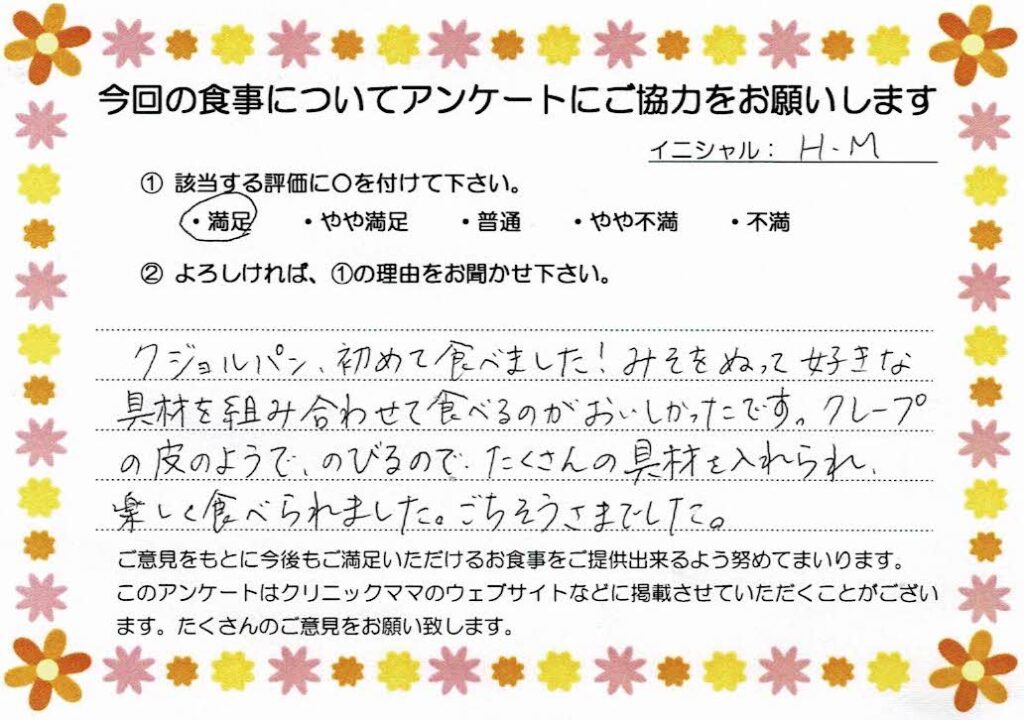 今回の食事についてアンケートにご協力をお願いします
イニシャル： H.M
① 該当する評価に〇を付けて下さい。
・満足 ・やや満足 ・普通 ・やや不満 ・不満
② よろしければ、①の理由をお聞かせ下さい。
クジョルパン、初めて食べました！みそをぬって好きな
具材を組み合わせて食べるのがおいしかったです。クレープ
の皮のようで、のびるので、たくさんの具材を入れられ、
楽しく食べられました。ごちそうさまでした。
ご意見をもとに今後もご満足いただけるお食事をご提供出来るよう努めてまいります。
このアンケートはクリニックママのウェブサイトなどに掲載させていただくことがござい
ます。たくさんのご意見をお願い致します。